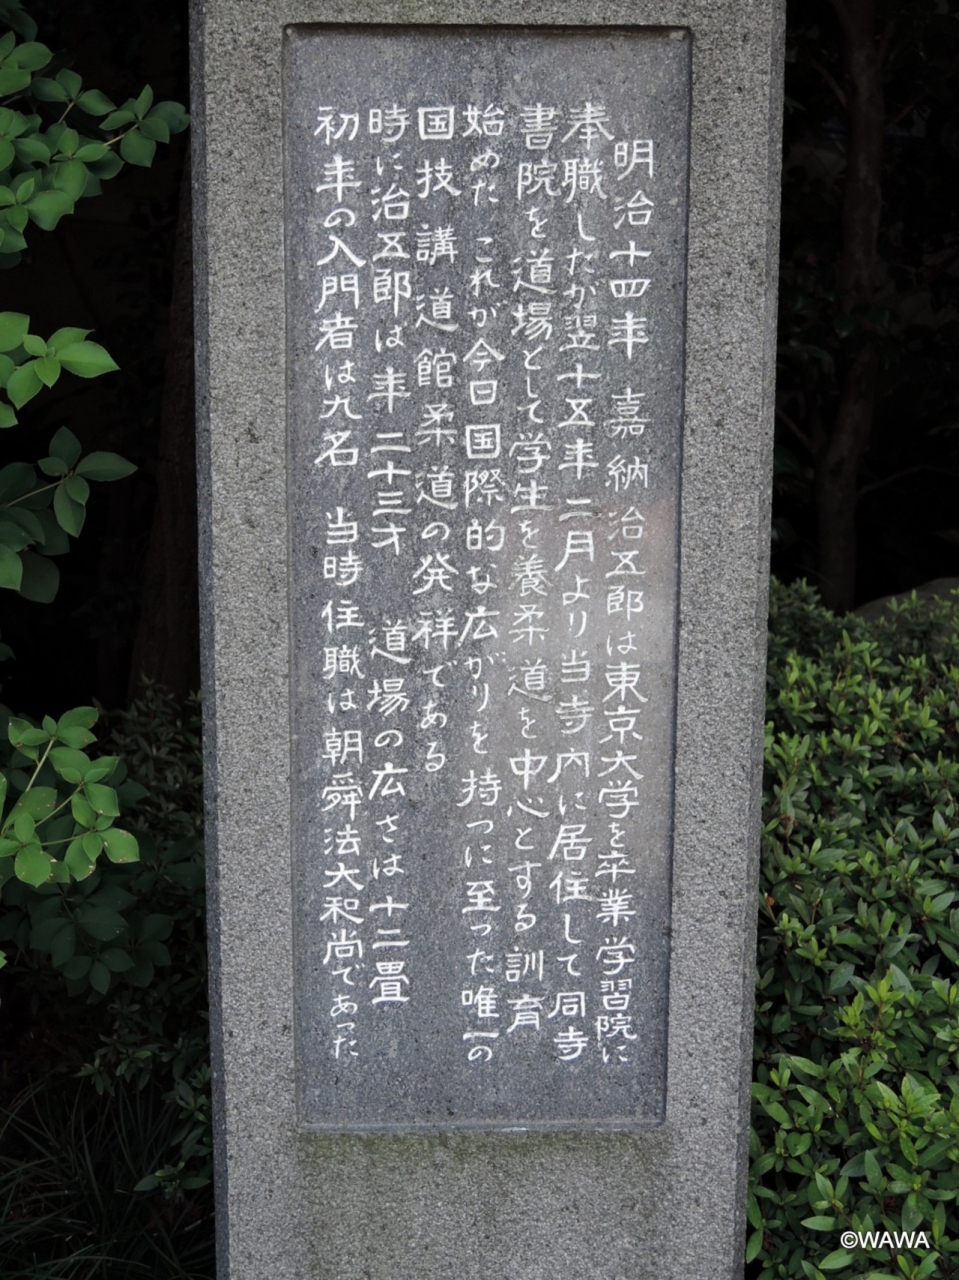 明治十四年 嘉納治五郎は東京大学を卒業学習院に
奉職したが翌十五年二月より当寺内に居住して同寺
書院を道場として学生を養柔道を中心とする訓育
始めた これが今日国際的な広がりを持つに至った唯一の
国技講道館柔道の発祥である
時に治五郎は年二十三才 道場の広さは十二畳
初年の入門者は九名 当時住職は朝舜法大和尚であった
©WAWA